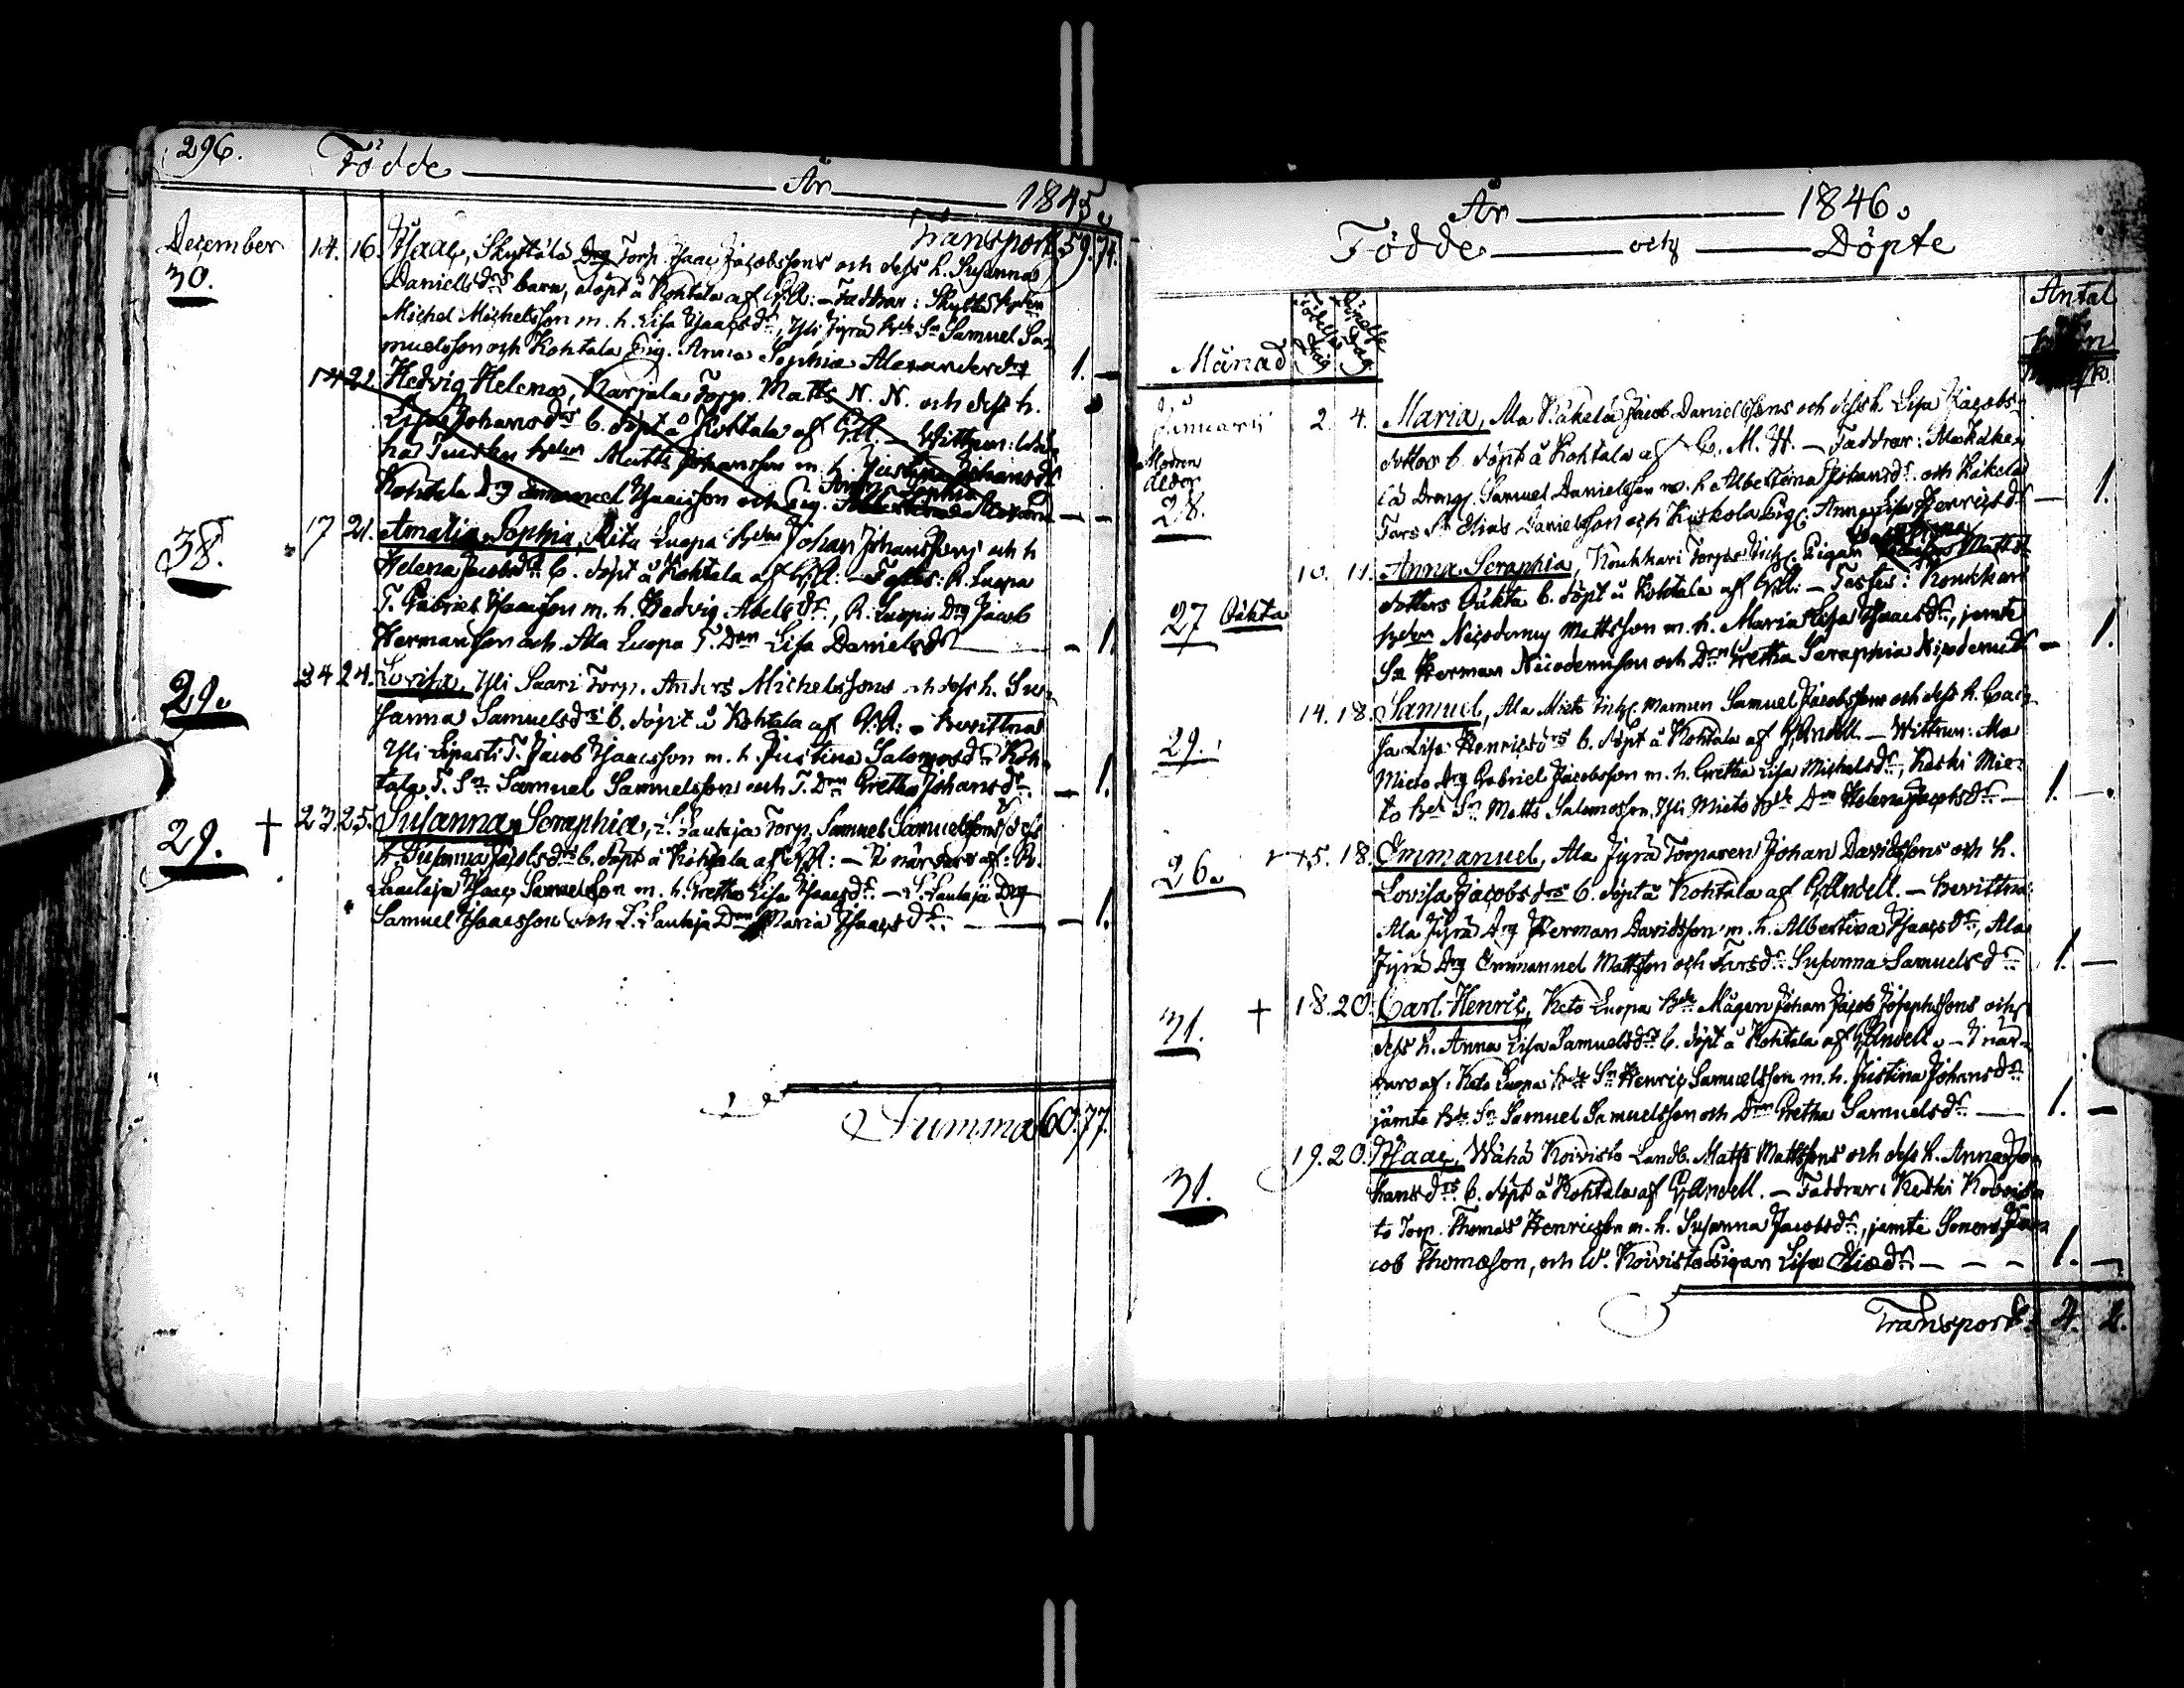 296. Födde År 1845.
Transport 59. 74.
December 14. 16. Isaac, Skyttälä Drg Torp. Isaac Jacobssons och dess h. Susanna
30. Daniels drs barn, döpt å Kohtala af GA: – Faddrar: Skyttälä
Michel Michelsson m. h. Lisa Isaacs dr, Yli Jyrä Sn Samuel Sa-
muelsson och Kohtala Pig. Anna Sophia Alexanders dr 1. –
14 21. Hedvig Helena, Karjala Torp. Matts N. N. och dess h.
Lisa Johans drs b. döpt å Kohtala af GA. – Wittnen:
Matts Johansson m. h. Justina Johans dr
Anna Sophia
Kohtala Drg Emanuel Isaacsson och Pig. – –
38. 17 21. Amalia Sophia, Rita Luopa Johan Johanssons och h
Helena Jacobs drs b. döpt å Kohtala af GA: – Testes: R. Luopa
T. Gabriel Isaacsson m. h. Hedvig Abels dr, R. Luopa Drg Jacob
Hermansson och Ala Luopa T. Dom Lisa Daniels dr – 1.
29. 24 24. Lovisa, Yli Saari Torp. Anders Michelssons och dess h. Su-
sanna Samuels drs b. döpt å Kohtala af GA: – bevittna
Yli Liparti T. Jacob Isaacsson m. h. Justina Salomos dr Koh-
tala T. Sn Samuel Samuelsson och T. Dn Gretha Johans dr – 1.
29. + 23. 25. Susanna Seraphia, L. Lautaja Torp. Samuel Samuelssons o dess
h. Susanna Jacobs drs b. döpt å Kohtala af GA: – I närvaro af: R.
Lautaja Isaac Samuelsson m. h. Gretha Lisa Isaacs dr – L. Lautaja Drg
Samuel Isaacsson och L. Lautaja Dn Maria Isaacs dr – 1.
Summa 60. 77.
År 1846.
Födde och Döpte
Månad Födelse Dag Dag Antal
Januarii 2. 4. Maria, Ala Käkelä Jacob Danielssons och dess h. Lisa Jacobs-
Modren dotters b. döpt å Kohtala af C. M. W. – Faddrar: Ala Käke-
ålder lä Dreng. Samuel Danielsson m. h. Albertina Johans dr och Käkelä
28. Fars Sn Elias Danielsson och Kuskola Pig. Anna Lisa Henrics dr – 1.
10. 11. Anna Seraphia, Koukkari Torps Inh. Pigan Matts
27 Oäkta dotters Oäkta b. döpt å Kohtala af GA: – Testes: Koukkari
Nicodemus Mattsson m. h. Maria Lisa Isaacs dr, jemte
Sn Herman Nicodemusson och Dn Gretha Seraphia Nicodemi dr – 1.
14. 18. Samuel, Ala Mieto Inh. Mannen Samuel Jacobssons och dess h. Cai-
29. sa Lisa Henrics drs b. döpt å Kohtala af GAndell. – Wittnen: Ala
Mieto Drg Gabriel Jacobsson m. h. Gretha Lisa Michels dr, Keski Mie-
to Sn Matts Salomosson, Yli Mieto Dn Helena Jacobs dr – 1. –
26. 15. 18. Emmanuel, Ala Jyrä Torparen Johan Davidssons och h.
Lovisa Jacobs drs b. döpt å Kohtala af GAndell. – bevittna:
Ala Jyrä Drg Herman Davidsson m. h. Albertina Isaacs dr, Ala
Jyrä Drg Emmanuel Mattsson och Susanna Samuels dr 1. –
31. + 18. 20. Carl Henric, Keto Luopa Mågen Johan Jacob Josephssons och
dess h. Anna Lisa Samuels drs b. döpt å Kohtala af GAndell. – I när-
varo af: Keto Luopa Sn Henric Samuelsson m. h. Justina Johans dr
jämte Sn Samuel Samuelsson och Dn Gretha Samuels dr – 1. –
31. 19. 20. Isaac, Wähä Koivisto Landb. Matts Mattssons och dess h. Anna Jo-
hans drs b. döpt å Kohtala af GAndell. – Faddrar: Keski Koivis-
to Torp. Thomas Henricsson m. h. Susanna Jacobs dr, jemte Sonen Ja-
cob Thomasson, och W. Koivisto Pigan Lisa Elias dr – – – 1. –
Transport 4. 2.